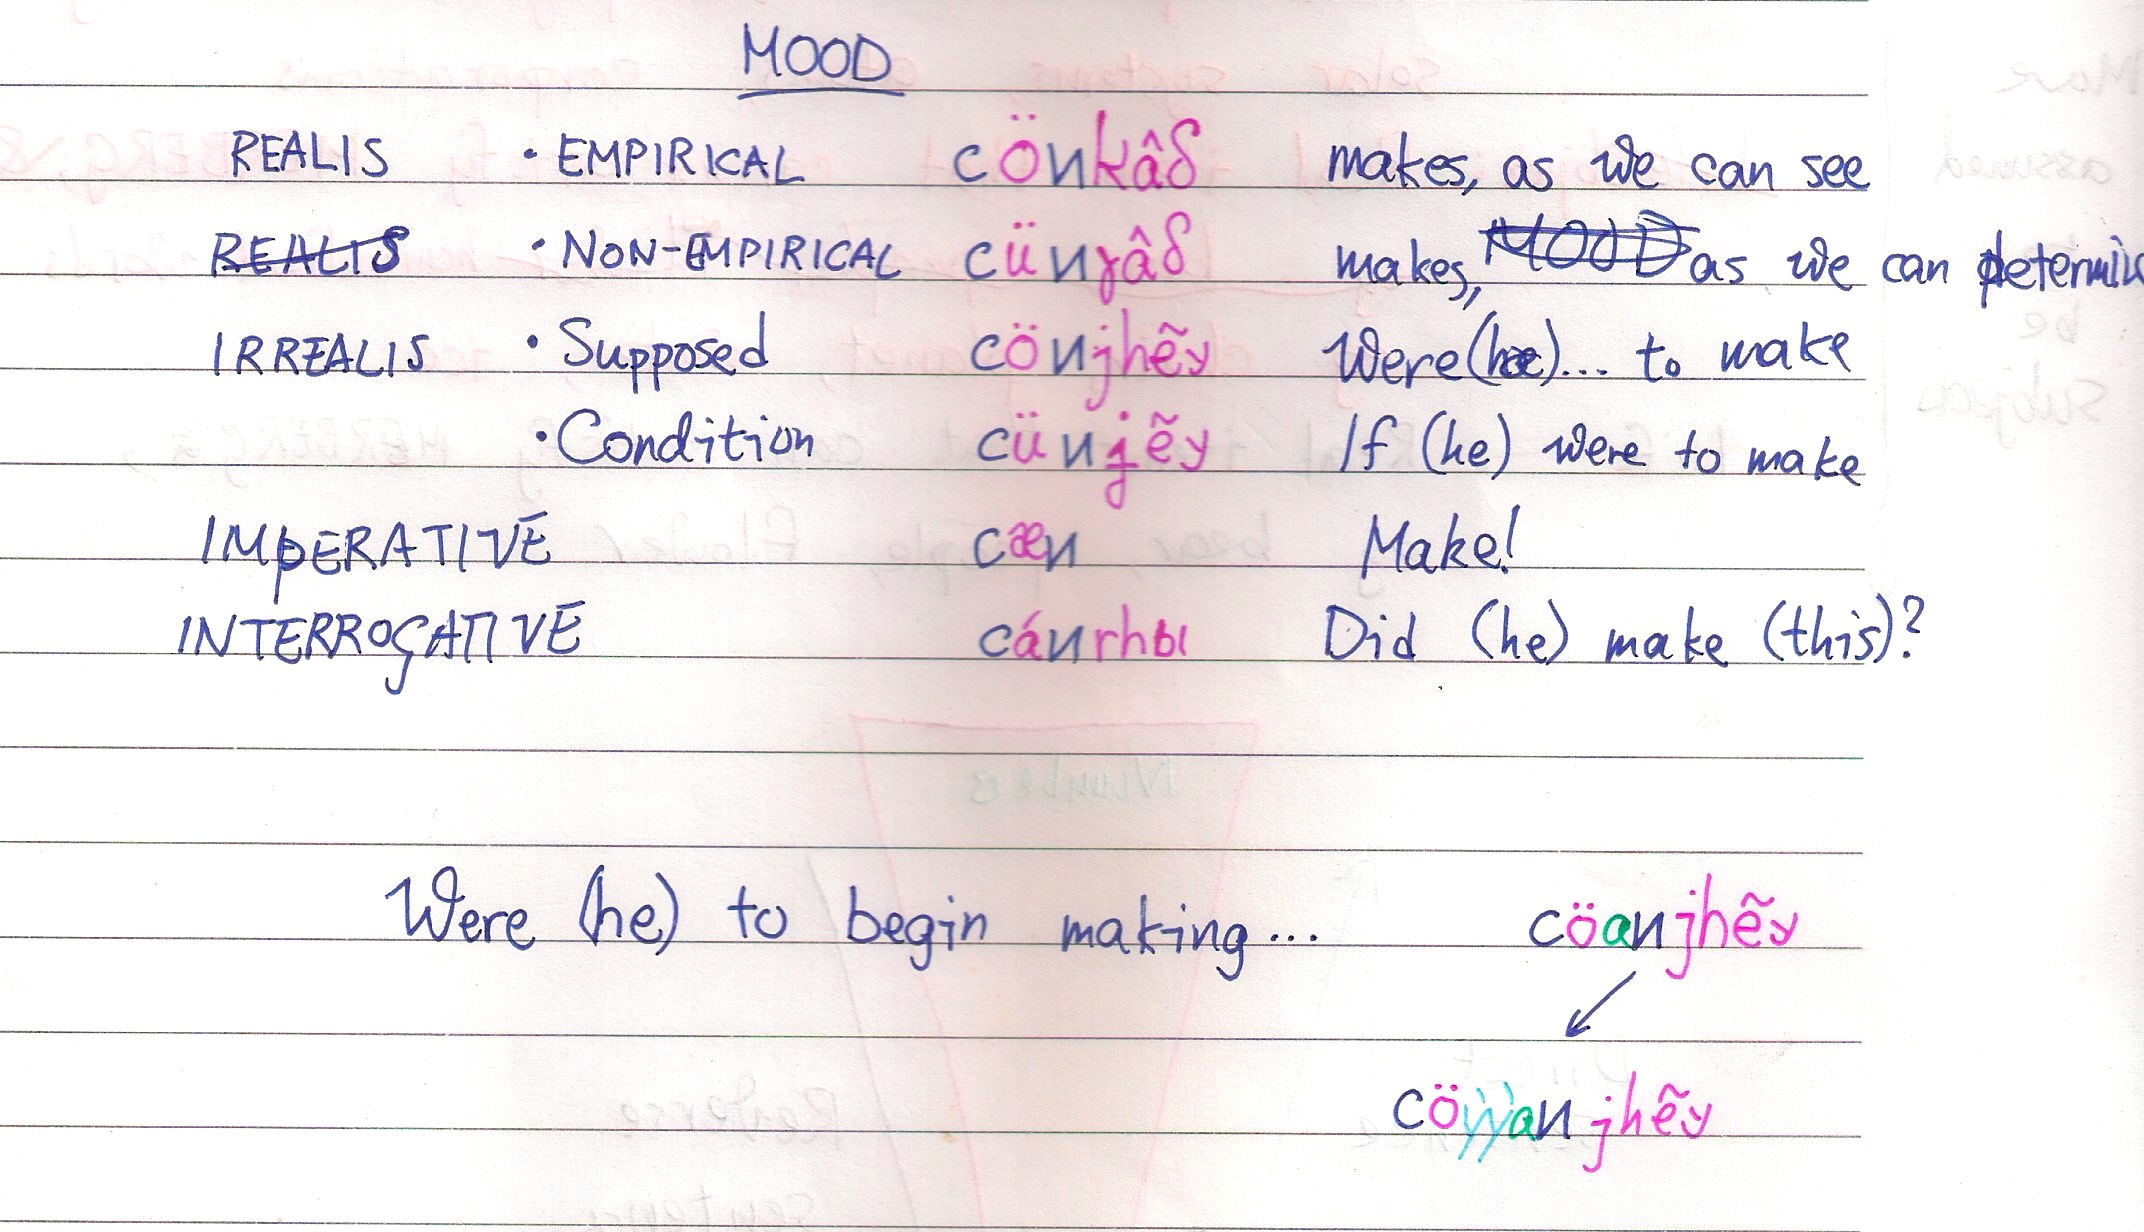 MOOD
REALIS • EMPIRICAL cönkâδ makes, as we can see
REALIS • NON-EMPIRICAL cünɣâδ makes, MOOD as we can determin
IRREALIS • Supposed cönjhẽy Were (he)... to make
• Condition cünjẽy If (he) were to make
IMPERATIVE cæn Make!
INTERROGATIVE cánrhы Did (he) make (this)?
Were (he) to begin making... cöanjhẽy
cöẏẏanjhẽy